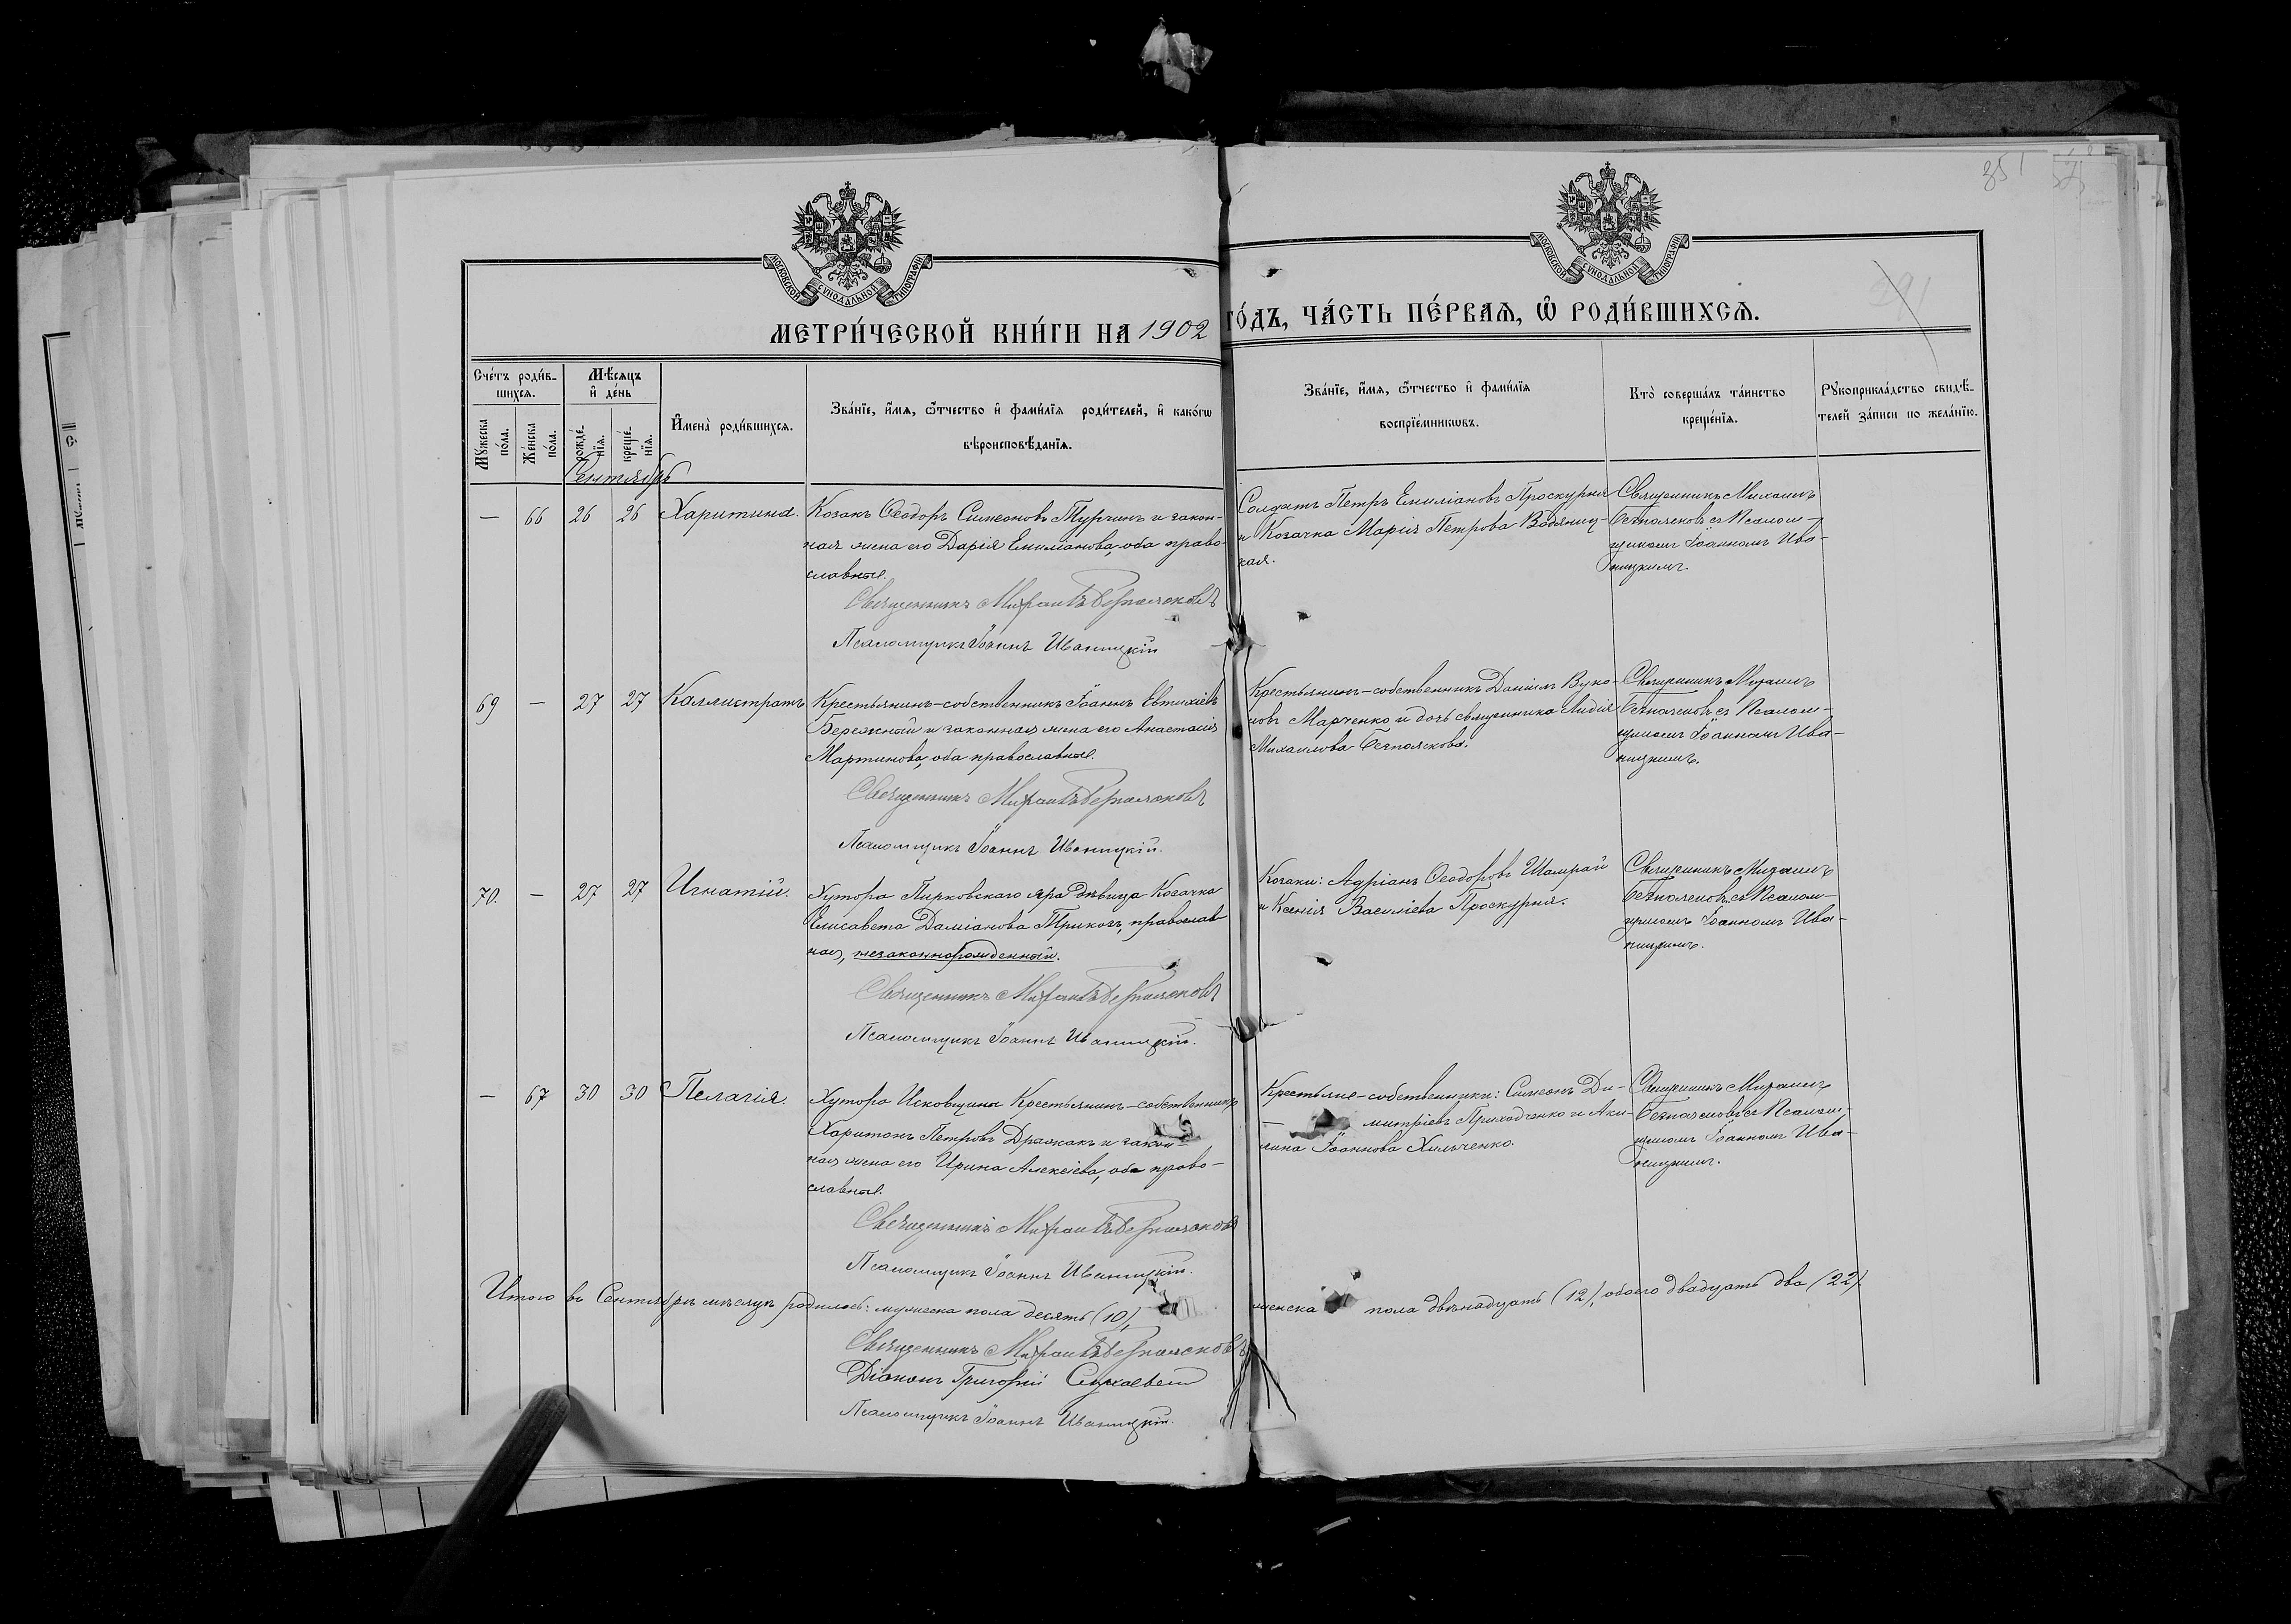 351
МОСКОВСКОЙ СѴНОДАЛЬНОЙ ТИПОГРАФІИ
МОСКОВСКОЙ СѴНОДАЛЬНОЙ ТИПОГРАФІИ
МЕТРИ́ЧЕСКОЙ КНИ́ГИ НА 1902 ГО́ДЪ, ЧА́СТЬ ПЕ́РВАѦ, Ѡ҆ РОДИ́ВШИХСѦ.
Сче́тъ роди́в-
шихсѧ.
Мꙋ́жеска по́ла.
Же́нска по́ла.
Мѣ́сѧцъ
и҆ де́нь
рожде́-
нїѧ.
креще́-
нїѧ.
И҆мена̀ роди́вшихсѧ.
Зва́нїе, и҆́мѧ, ѻ҆́тчество и҆ фами́лїѧ роди́телей, и҆ како́гѡ
вѣроисповѣ́данїѧ.
Зва́нїе, и҆́мѧ, ѻ҆́тчество и҆ фами́лїѧ
воспрїе́мникѡвъ.
Кто̀ соверша́лъ та́инство
креще́нїѧ.
Рꙋкоприкла́дство свидѣ́-
телей за́писи по жела́нїю.
Сентябрь
— 66 26 26 Харитина.
Козакъ Ѳеодоръ Симеоновъ Турчинъ и закон-
ная жена его Дарія Емиліанова, оба право-
славные.
Священникъ Михаилъ Безпалсковъ
Псаломщикъ Іоаннъ Иваницкій
Солдатъ Петръ Емиліановъ Проскурня
и Козачка Марія Петрова Водяниц-
кая.
Священникъ Михаилъ
съ Псалом-
щикомъ Іоанномъ Ива-
ницкимъ.
69 — 27 27 Каллистратъ
Крестьянинъ-собственникъ Іоаннъ Евтихіевъ
Бережный и законная жена его Анастасія
Мартинова, оба православные.
Священникъ Михаилъ
Псаломщикъ Іоаннъ Иваницкій.
Крестьянинъ-собственникъ Даніилъ Вуко-
ловъ Марченко и дочь священника Лидія
Михаилова
Священникъ Михаилъ
съ Псалом-
щикомъ Іоанномъ Ива-
ницкимъ.
70. — 27 27 Игнатій.
Хутора Пирковскаго яра дѣвица Козачка
Елисавета Даміанова Трикозъ, православ
ная, незаконнорожденный.
Священникъ Михаилъ
Псаломщикъ Іоаннъ Иваницкій.
Козаки: Адріанъ Ѳеодоровъ Шамрай
и Ксенія Василіева Проскурня.
Священникъ Михаилъ
съ Псалом-
щикомъ Іоанномъ Ива-
ницкимъ.
— 67 30 30 Пелагія.
Хутора Исковщины Крестьянинъ-собственникъ
Харитонъ Петровъ Дражакъ и закон-
ная жена его Ирина Алексіева, оба право-
славные.
Священникъ Михаилъ
Псаломщикъ Іоаннъ Иваницкій.
Крестьяне-собственники: Симеонъ Ди-
митріевъ Приходченко и Аки-
лина Іоаннова Хильченко.
Священникъ Михаилъ
съ Псалом-
щикомъ Іоанномъ Ива-
ницкимъ.
Итого въ Сентябрѣ мѣсяцѣ родилось: мужеска пола десять (10), женска пола двѣнадцать (12), обоего двадцать два (22)
Священникъ Михаилъ
Діаконъ Григорій
Псаломщикъ Іоаннъ Иваницкій.